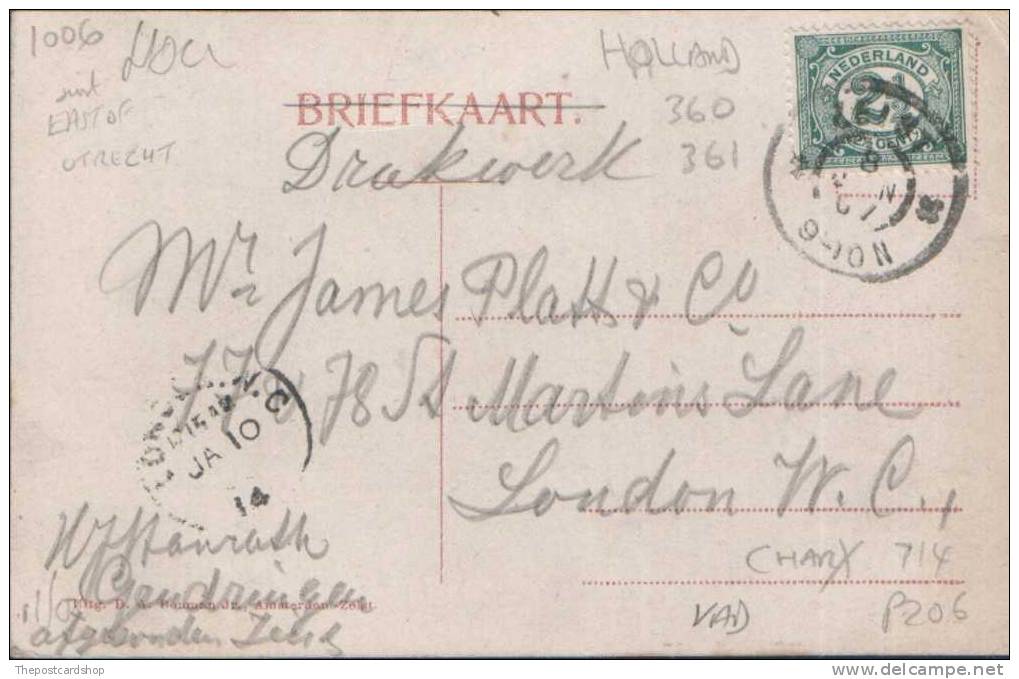 1006
HOLLAND
just
EAST OF
UTRECHT
360
361
NEDERLAND
2½
CENT
BRIEFKAART.
Drukwerk
9-10N
Mr. James Platt & Co
77 & 78 St Martins Lane
London W.C.,
W.C
JA 10
14
Gendringen
Uitg. D. A. Bouman Jr., Amsterdam-Zeist
CHARX 714
VAD
P206
Thepostcardshop